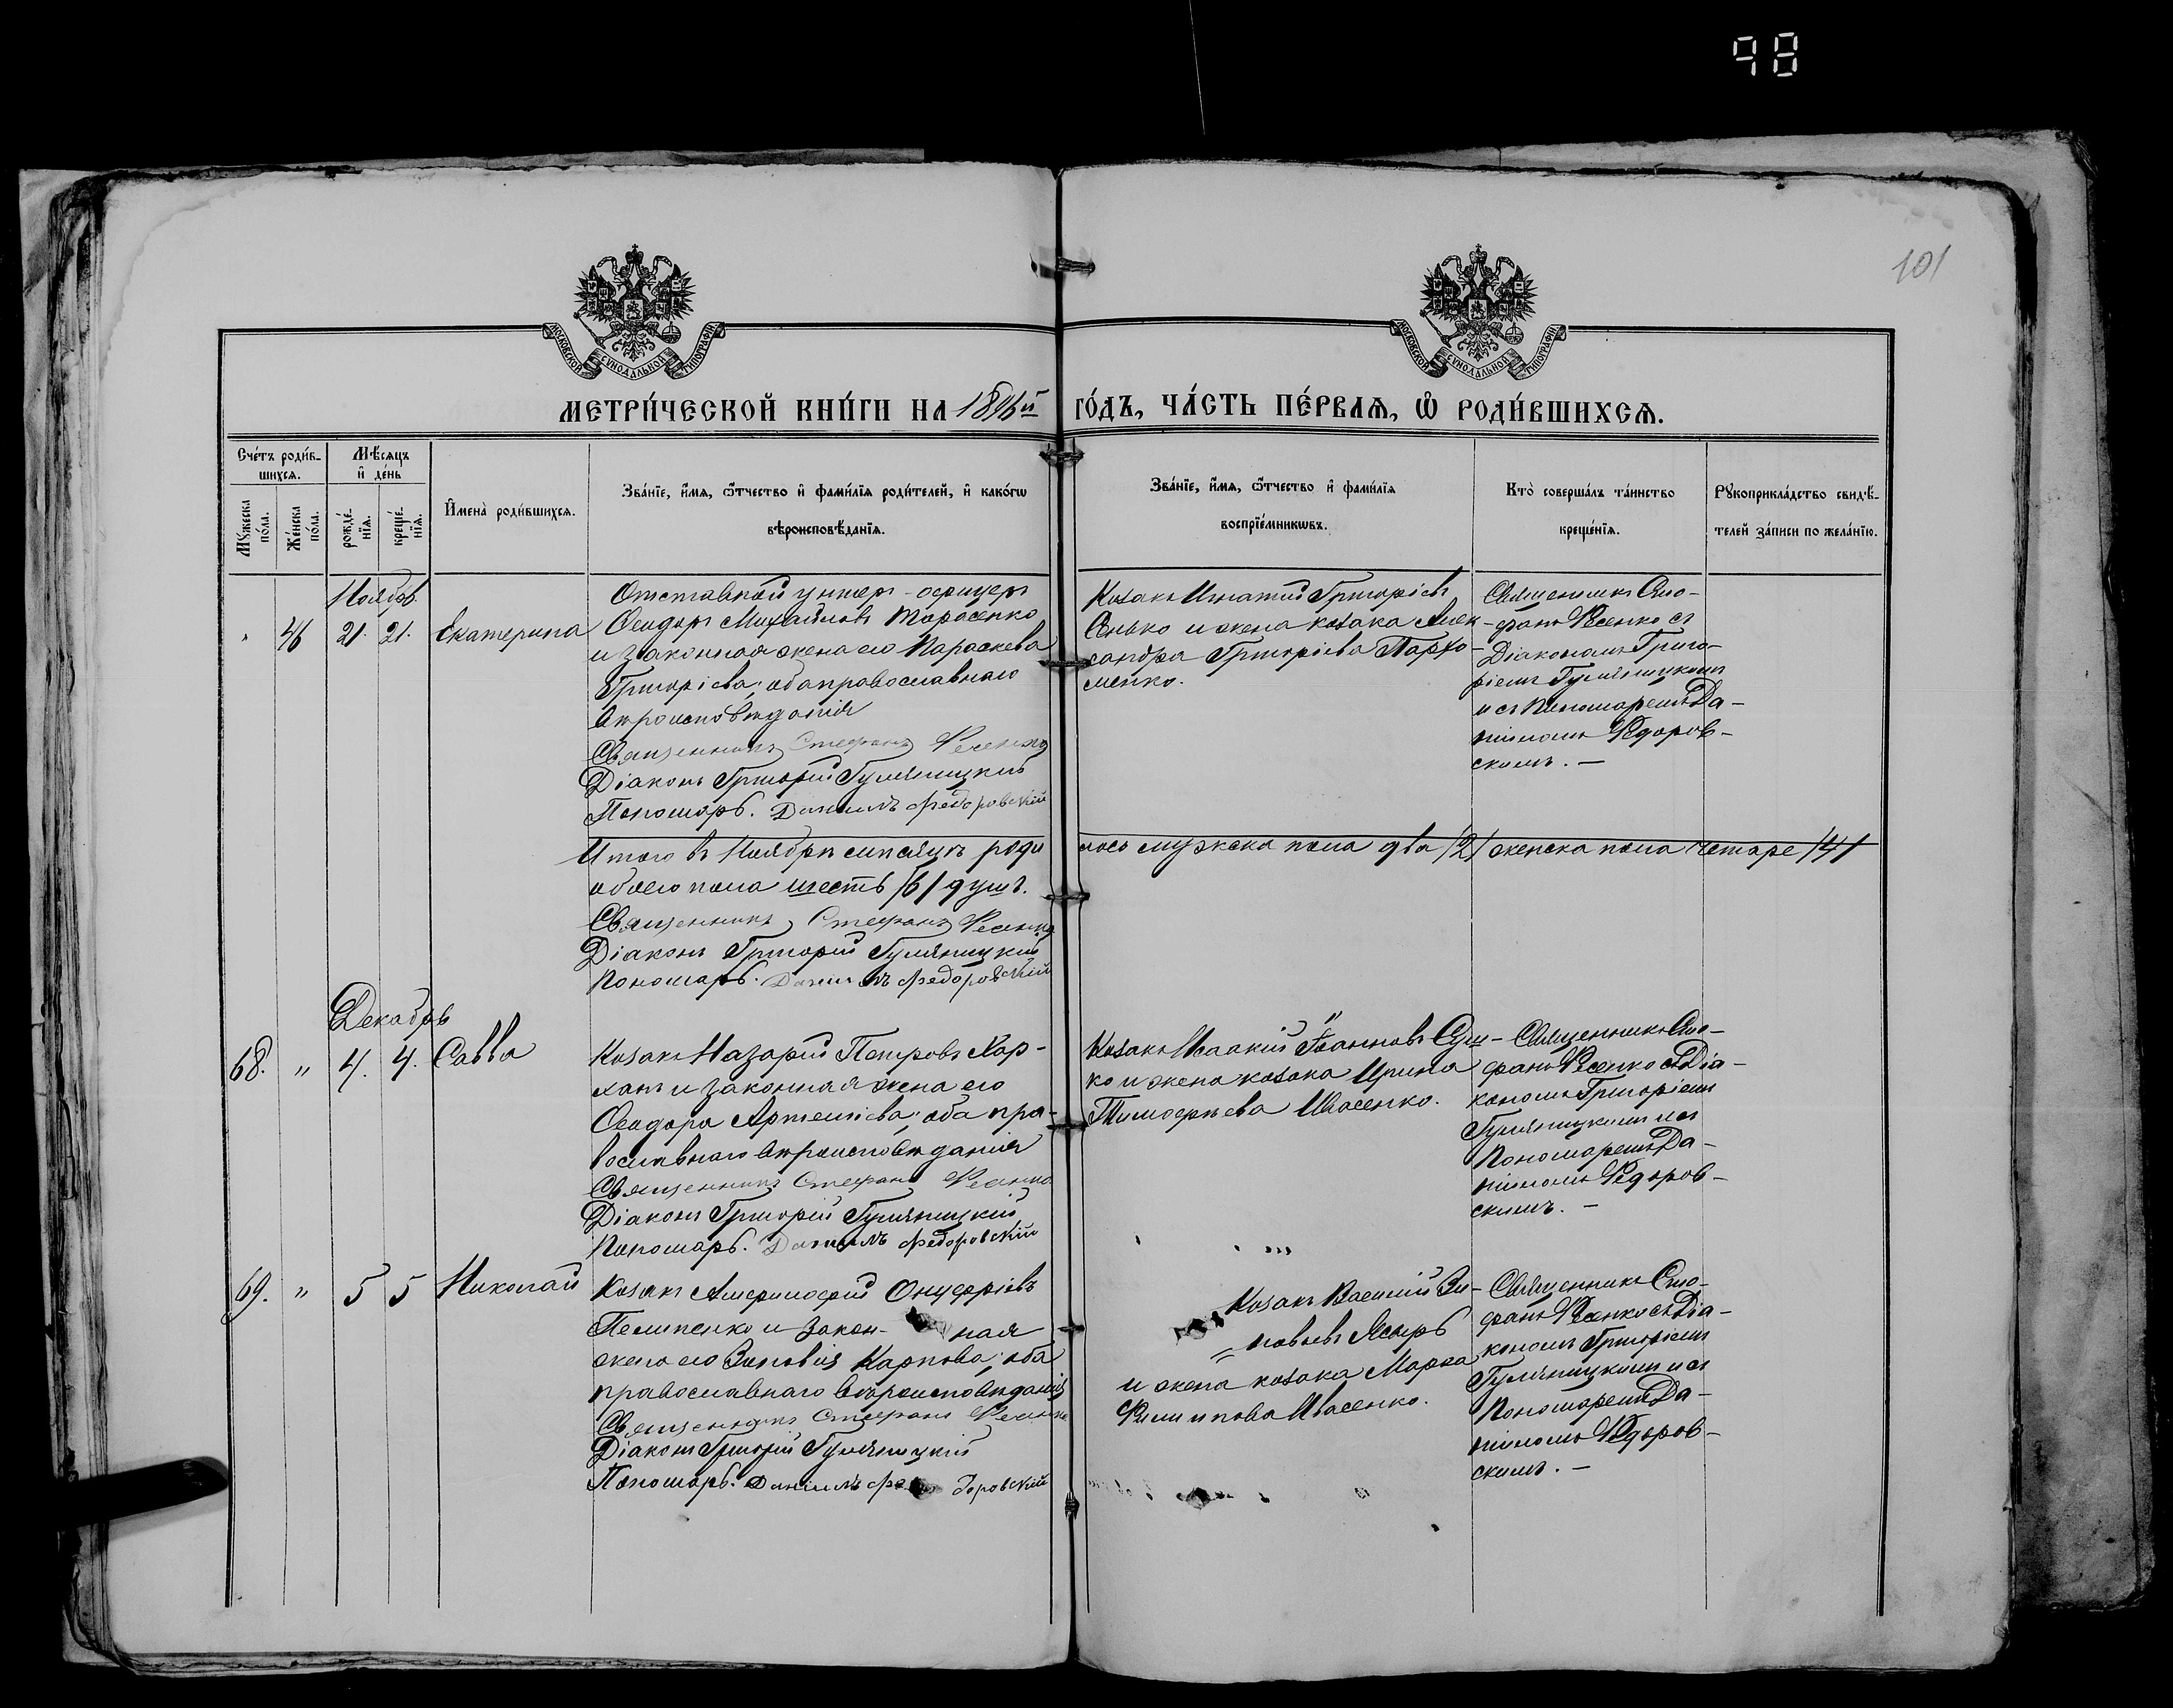 98
101
МОСКОВСКОЙ СѴНОДАЛЬНОЙ ТИПОГРАФІИ
МОСКОВСКОЙ СѴНОДАЛЬНОЙ ТИПОГРАФІИ
МЕТРИ́ЧЕСКОЙ КНИ́ГИ НА 1896й ГО́ДЪ, ЧА́СТЬ ПЕ́РВАѦ, Ѡ҆ РОДИ́ВШИХСѦ.
Сче́тъ роди́в-
шихсѧ.
Мѣ́сѧцъ
и҆ де́нь
Мꙋ́жеска
по́ла.
Же́нска
по́ла.
рожде́-
нїѧ.
креще́-
нїѧ.
И҆мена̀ роди́вшихсѧ.
Зва́нїе, и҆́мѧ, ѻ҆́тчество и҆ фами́лїѧ роди́телей, и҆ како́гѡ
вѣроисповѣ́данїѧ.
Зва́нїе, и҆́мѧ, ѻ҆́тчество и҆ фами́лїѧ
воспрїе́мникѡвъ.
Кто̀ соверша́лъ та́инство
креще́нїѧ.
Рꙋкоприкла́дство свидѣ́-
телей за́писи по жела́нїю.
Ноябрь
46 21. 21. Екатерина
Отставной унтер-офицеръ
Ѳеодоръ Михайловъ Тарасенко
и законная жена его Параскева
Григоріева; оба православнаго
вѣроисповѣданія
Священникъ Стефанъ Фесенко
Діаконъ Григорій Гуляницкій
Пономарь. Даніилъ Федоровскій
Козакъ Игнатій Григоріевъ
и жена козака Алек-
сандра Григоріева Пархо-
менко.
Священникъ Сте-
фанъ Фесенко съ
Діакономъ Григо-
ріемъ Гуляницкимъ
и съ Пономаремъ Да-
ніиломъ Федоров-
скимъ. —
Итого въ Ноябрѣ мѣсяцѣ роди лось мужска пола два /2/ женска пола четыре /4/
обоего пола шесть /6/ душъ.
Священникъ Стефанъ Фесенко
Діаконъ Григорій Гуляницкій
Пономарь. Даніилъ Федоровскій
Декабрь
68. " 4. 4. Савва
Козакъ Назарій Петровъ Хар-
ланъ и законная жена его
Ѳеодора Артеміева; оба пра-
вославнаго вѣроисповѣданія
Священникъ Стефанъ Фесенко
Діаконъ Григорій Гуляницкій
Пономарь. Даніилъ Федоровскій
Козакъ Исаакій Іоанновъ Суш-
ко и жена козака Ирина
Тимофѣева Ивасенко.
Священникъ Сте-
фанъ Фесенко съ Діа-
кономъ Григоріемъ
Гуляницкимъ и съ
Пономаремъ Да-
ніиломъ Федоров-
скимъ. —
69. " 5 5 Николай
Козакъ Онуфріевъ
Пелипенко и закон- ная
жена его Зиновія Карпова; оба
православнаго вѣроисповѣданія
Священникъ Стефанъ Фесенко
Діаконъ Григорій Гуляницкій
Пономарь. Даніилъ Федоровскій
Козакъ Василій Зи-
новьевъ
и жена козака Марѳа
Филиппова Ивасенко.
Священникъ Сте-
фанъ Фесенко съ Діа-
кономъ Григоріемъ
Гуляницкимъ и съ
Пономаремъ Да-
ніиломъ Федоров-
скимъ. —